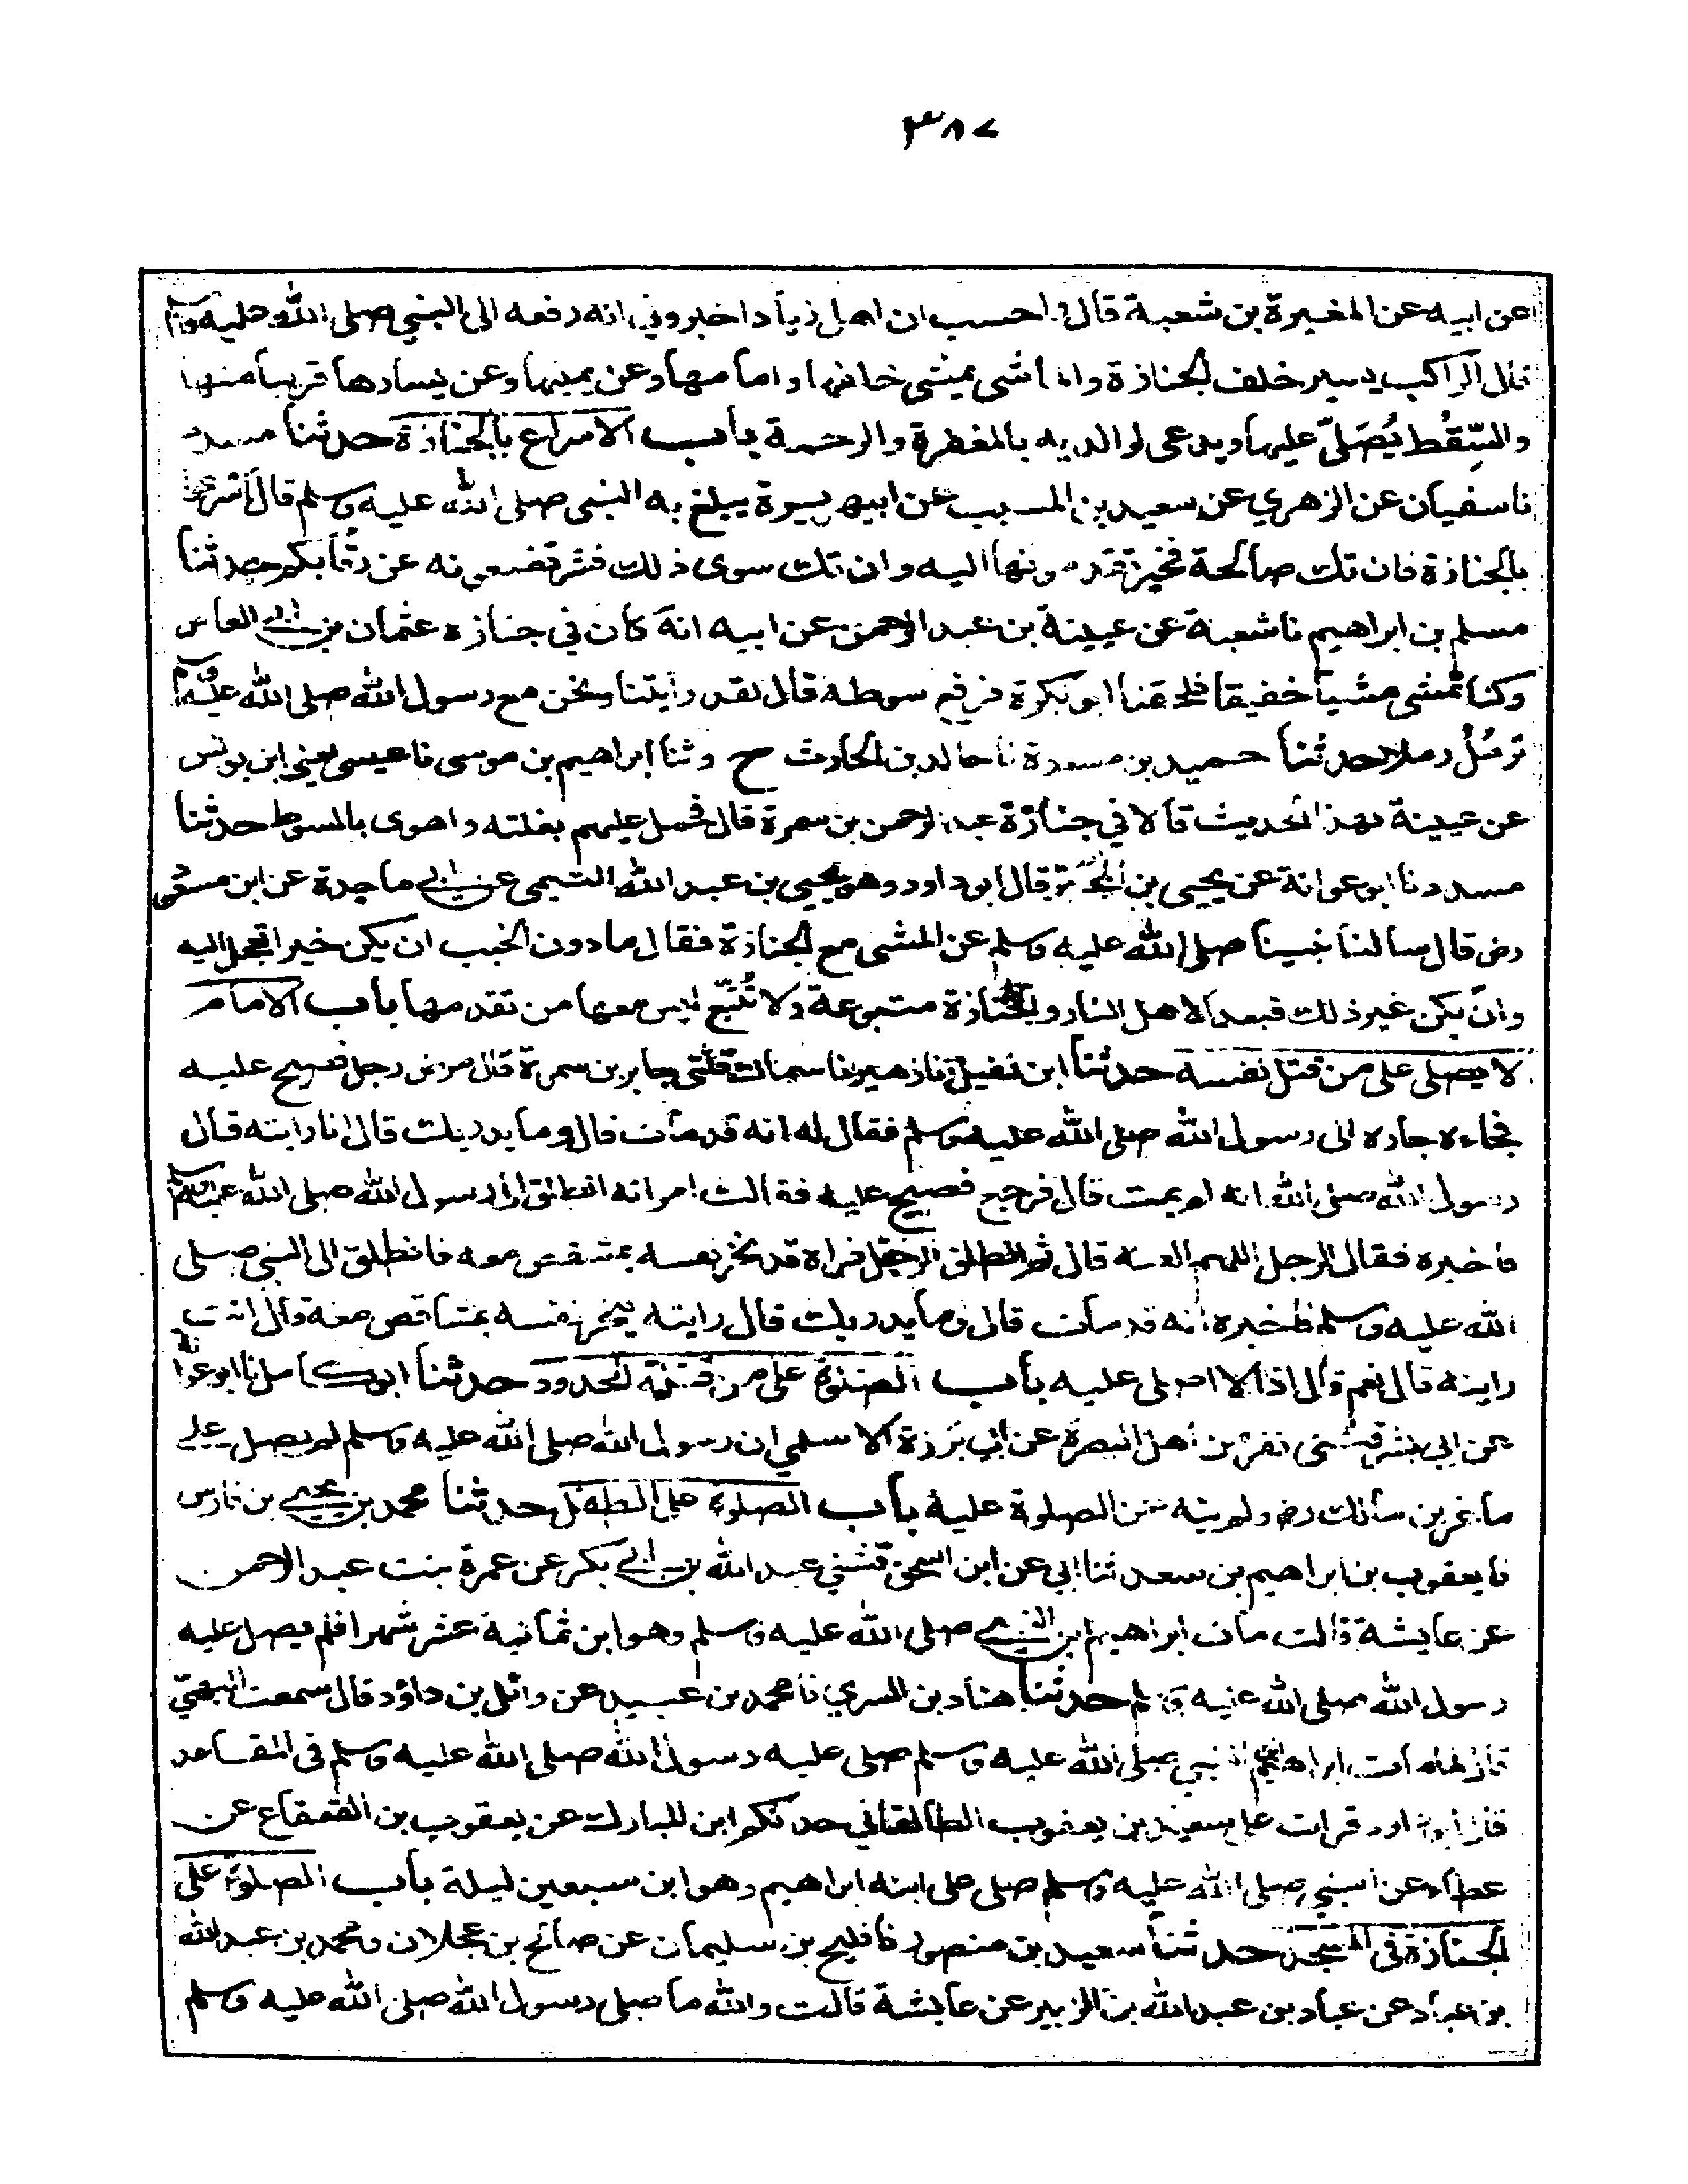 ٣٨٧
عن ابيه عن المغيرة بن شعبة قال و احسب ان اهل زياد اخبروني انه رفعه الى النبي صلى الله عليه وسلم
قال الراكب يسير خلف الجنازة والماشى يمشى خلفها وامامها وعن يمينها وعن يسارها قريبا منها
والسِّقْط يُصَلّى عليها ويدعى لوالديه بالمغفرة والرحمة باب الاسراع بالجنازة حدثنا مسدد
نا سفيان عن الزهري عن سعيد بن المسيب عن ابيهريرة يبلغ به النبى صلى الله عليه وسلم قال اسرعوا
بالجنازة فان تك صالحة فخير تقدمونها اليه وان تك سوى ذلك فشر تضعونه عن رقابكم حدثنا
مسلم بن ابراهيم نا شعبة عن عيينة بن عبد الرحمن عن ابيه انه كان في جنازة عثمان بن ابى العاص
وكنا نمشى مشيا خفيفا فلحقنا ابو بكرة فرفع سوطه قال لقد رأيتنا ونحن مع رسول الله صلى الله عليه وسلم
نرمُلُ رملا حدثنا حميد بن مسعدة نا خالد بن الحارث ح وثنا ابراهيم بن موسى نا عيسى يعنى ابن يونس
عن عيينة بهذا الحديث قالا في جنازة عبد الرحمن بن سمرة قال فحمل عليهم بغلته واهوى بالسوط حدثنا
مسدد نا ابو عوانة عن يحيى بن المجبر قال ابو داود وهو يحيى بن عبد الله التيمى عن ابى ماجدة عن ابن مسعود
رض قال سالنا نبينا صلى الله عليه وسلم عن المشى مع الجنازة فقال ما دون الخبب ان يكن خيرا تعجل اليه
وان يكن غير ذلك فبعدا لاهل النار والجنازة متبوعة ولا تُتبع ليس معها من تقدمها باب الامام
لا يصلى على من قتل نفسه حدثنا ابن نفيل نا زهير نا سماك قثنى جابر بن سمرة قال مرض رجل فصيح عليه
فجاءه جاره الى رسول الله صلى الله عليه وسلم فقال له انه قد مات قال وما يدريك قال انا رايته قال
رسول الله صلى الله انه لم يمت قال فرجع فصيح عليه فقالت امراته انطلق الى رسول الله صلى الله عليه وسلم
فاخبره فقال الرجل اللهم العنه قال ثم انطلق الرجل فراه قد نحر نفسه بمشقص معه فانطلق الى النبي صلى
الله عليه وسلم فاخبره انه قد مات قال وما يدريك قال رايته ينحر نفسه بمشاقص معه قال انت
رايته قال نعم قال اذا لا اصلى عليه باب الصلوة على من قتلته الحدود حدثنا ابو كامل نا ابو عوانة
عن ابي بشر قثنى نفر من اهل البصرة عن ابي برزة الاسلمي ان رسول الله صلى الله عليه وسلم لم يصل على
ماعز بن مالك رض ولم ينه عن الصلوة عليه باب الصلوة على الطفل حدثنا محمد بن يحيى بن فارس
نا يعقوب بن ابراهيم بن سعد ثنا ابي عن ابن اسحق قثني عبد الله بن ابى بكر عن عمرة بنت عبد الرحمن
عن عايشة قالت مات ابراهيم ابن النبي صلى الله عليه وسلم وهو ابن ثمانية عشر شهرا فلم يصل عليه
رسول الله صلى الله عليه وسلم حدثنا هناد بن السري نا محمد بن عبيد عن وائل بن داؤد قال سمعت البهىّ
قال لما مات ابراهيم ابن النبي صلى الله عليه وسلم صلى عليه رسول الله صلى الله عليه وسلم فى المقاعد
قال ابو داود قرات على سعيد بن يعقوب الطالقاني حدثكم ابن المبارك عن يعقوب بن القعقاع عن
عطاء عن النبي صلى الله عليه وسلم صلى على ابنه ابراهيم وهو ابن سبعين ليلة باب الصلوة على
الجنازة فى المسجد حدثنا سعيد بن منصور نا فليح بن سليمان عن صالح بن عجلان ومحمد بن عبد الله
بن عباد عن عباد بن عبد الله بن الزبير عن عايشة قالت والله ما صلى رسول الله صلى الله عليه وسلم